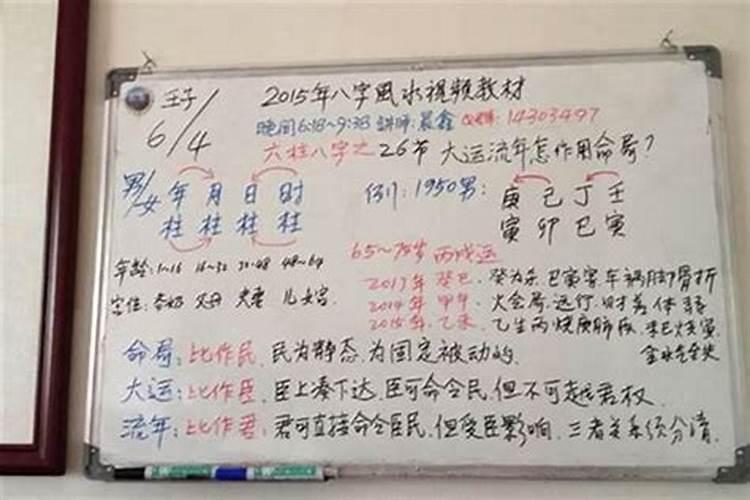 壬子
6/4
2015年八字風水視頻教材
晚间6:18~9:38 講师:晨鑫 14303497
六柱八字之26节 大运流年怎作用命局?
男/女 年 月 日 时
柱 柱 柱 柱
例:1950男: 庚 己 丁 壬
寅 卯 巳 寅
年龄:1~16 16~32 32~48 48~64
宫位: 父母 夫妻 儿女宫
65~75岁 丙戌运
2013年 癸巳. 癸为杀. 巳寅害 车祸脚骨折
2014年 甲午. 火会局. 远行. 财差体弱
2015年. 乙未. 乙生丙
命局:比作民. 民为静态. 为固定被动的.
大运:比作臣. 臣上凑下达. 臣可命令民. 但不可越君权.
流年:比作君. 君可直接命令臣民. 但受臣影响. 三者关系须分清.